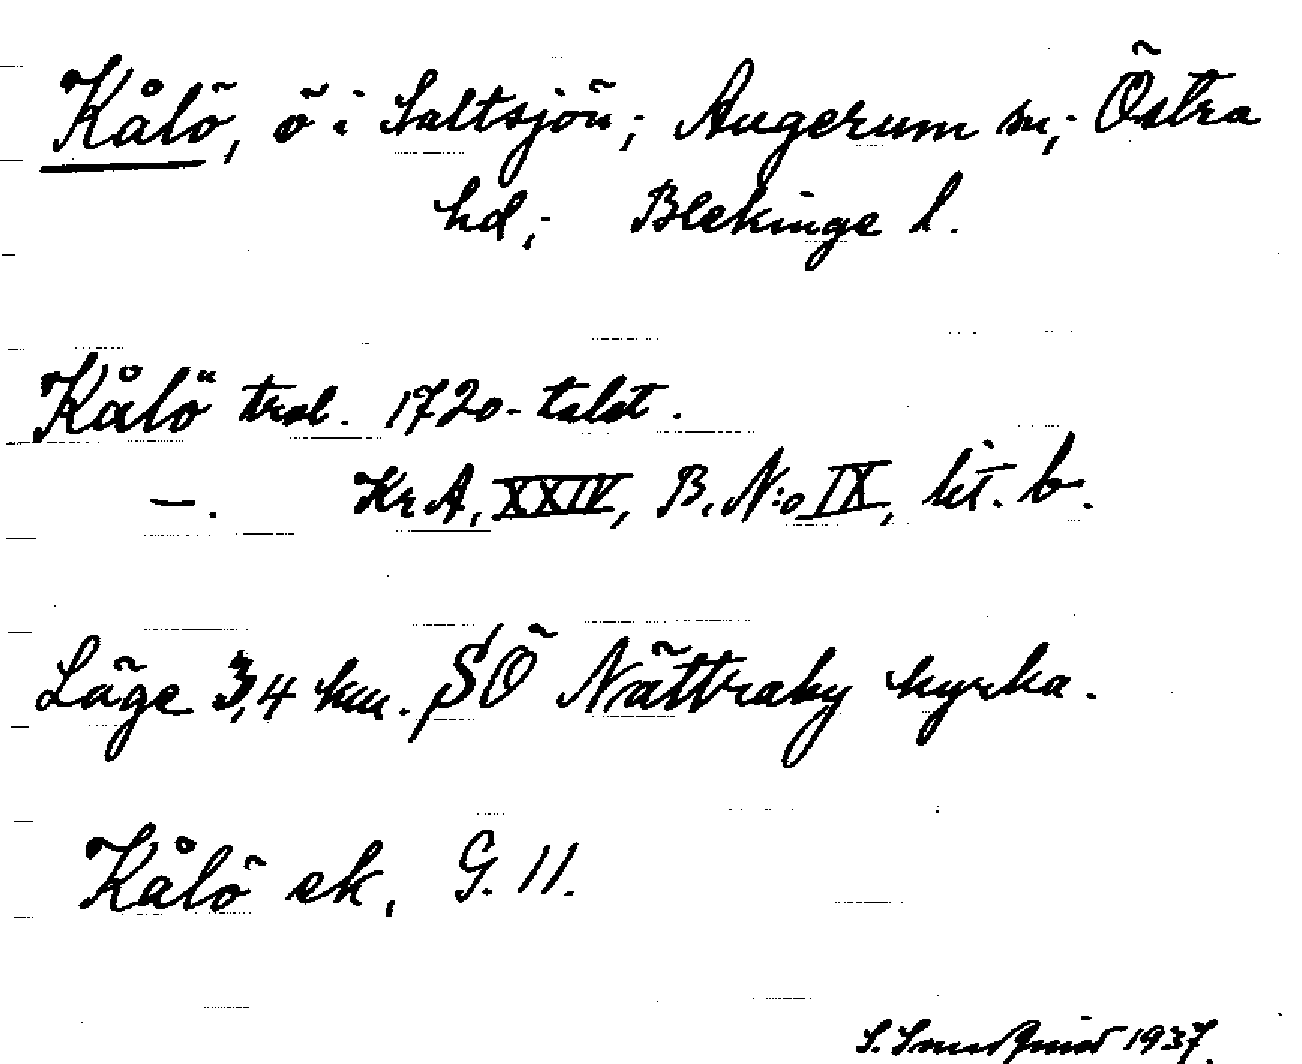 Kålö, ö i Saltsjön; Augerum sn; Östra
hd; Blekinge l.
Kålö trol. 1720-talet.
—. KrA, XXIV, B. N:o IX, lit. b.
Läge 3,4 km. SÖ Nättraby kyrka.
Kålö ek, G. 11.
S. 1937.